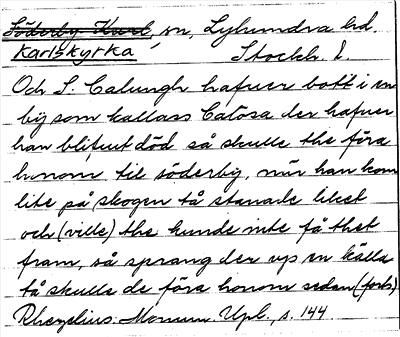 Söderby Karl, sn, Lyhundra hd.
Karlskyrka Stockh. l.
Och S. Calungh hafuer bott i en
by som kallass Calösa der hafuer
han blifuit död så skulle the föra
honom til söderby, när han kom
lite på skogen tå stanade liket
och (ville) the kunde inte få thet
fram, så sprang der up en källa
tå skulle de föra honom sedan (forts)
Rhezelius: Monum. Upl., s. 144.